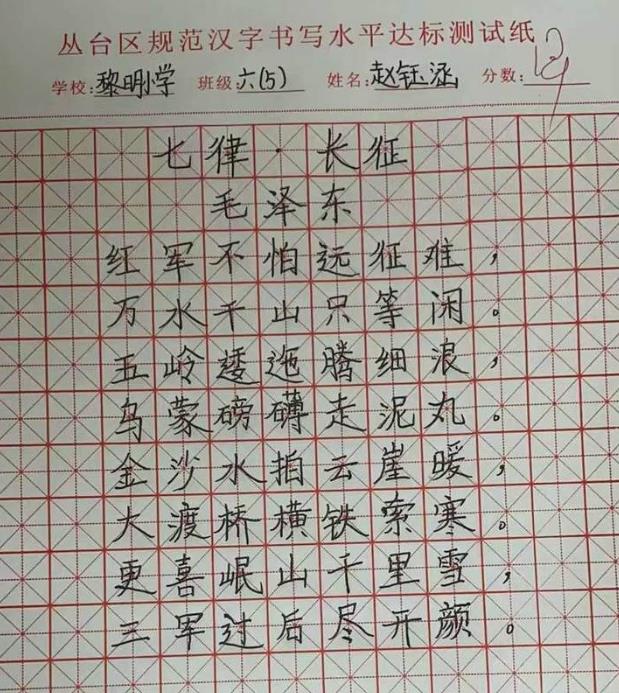 丛台区规范汉字书写水平达标测试纸
学校:黎明小学 班级:六(5) 姓名:赵钰涵 分数:
七律·长征
毛泽东
红军不怕远征难，
万水千山只等闲。
五岭逶迤腾细浪，
乌蒙磅礴走泥丸。
金沙水拍云崖暖，
大渡桥横铁索寒。
更喜岷山千里雪，
三军过后尽开颜。